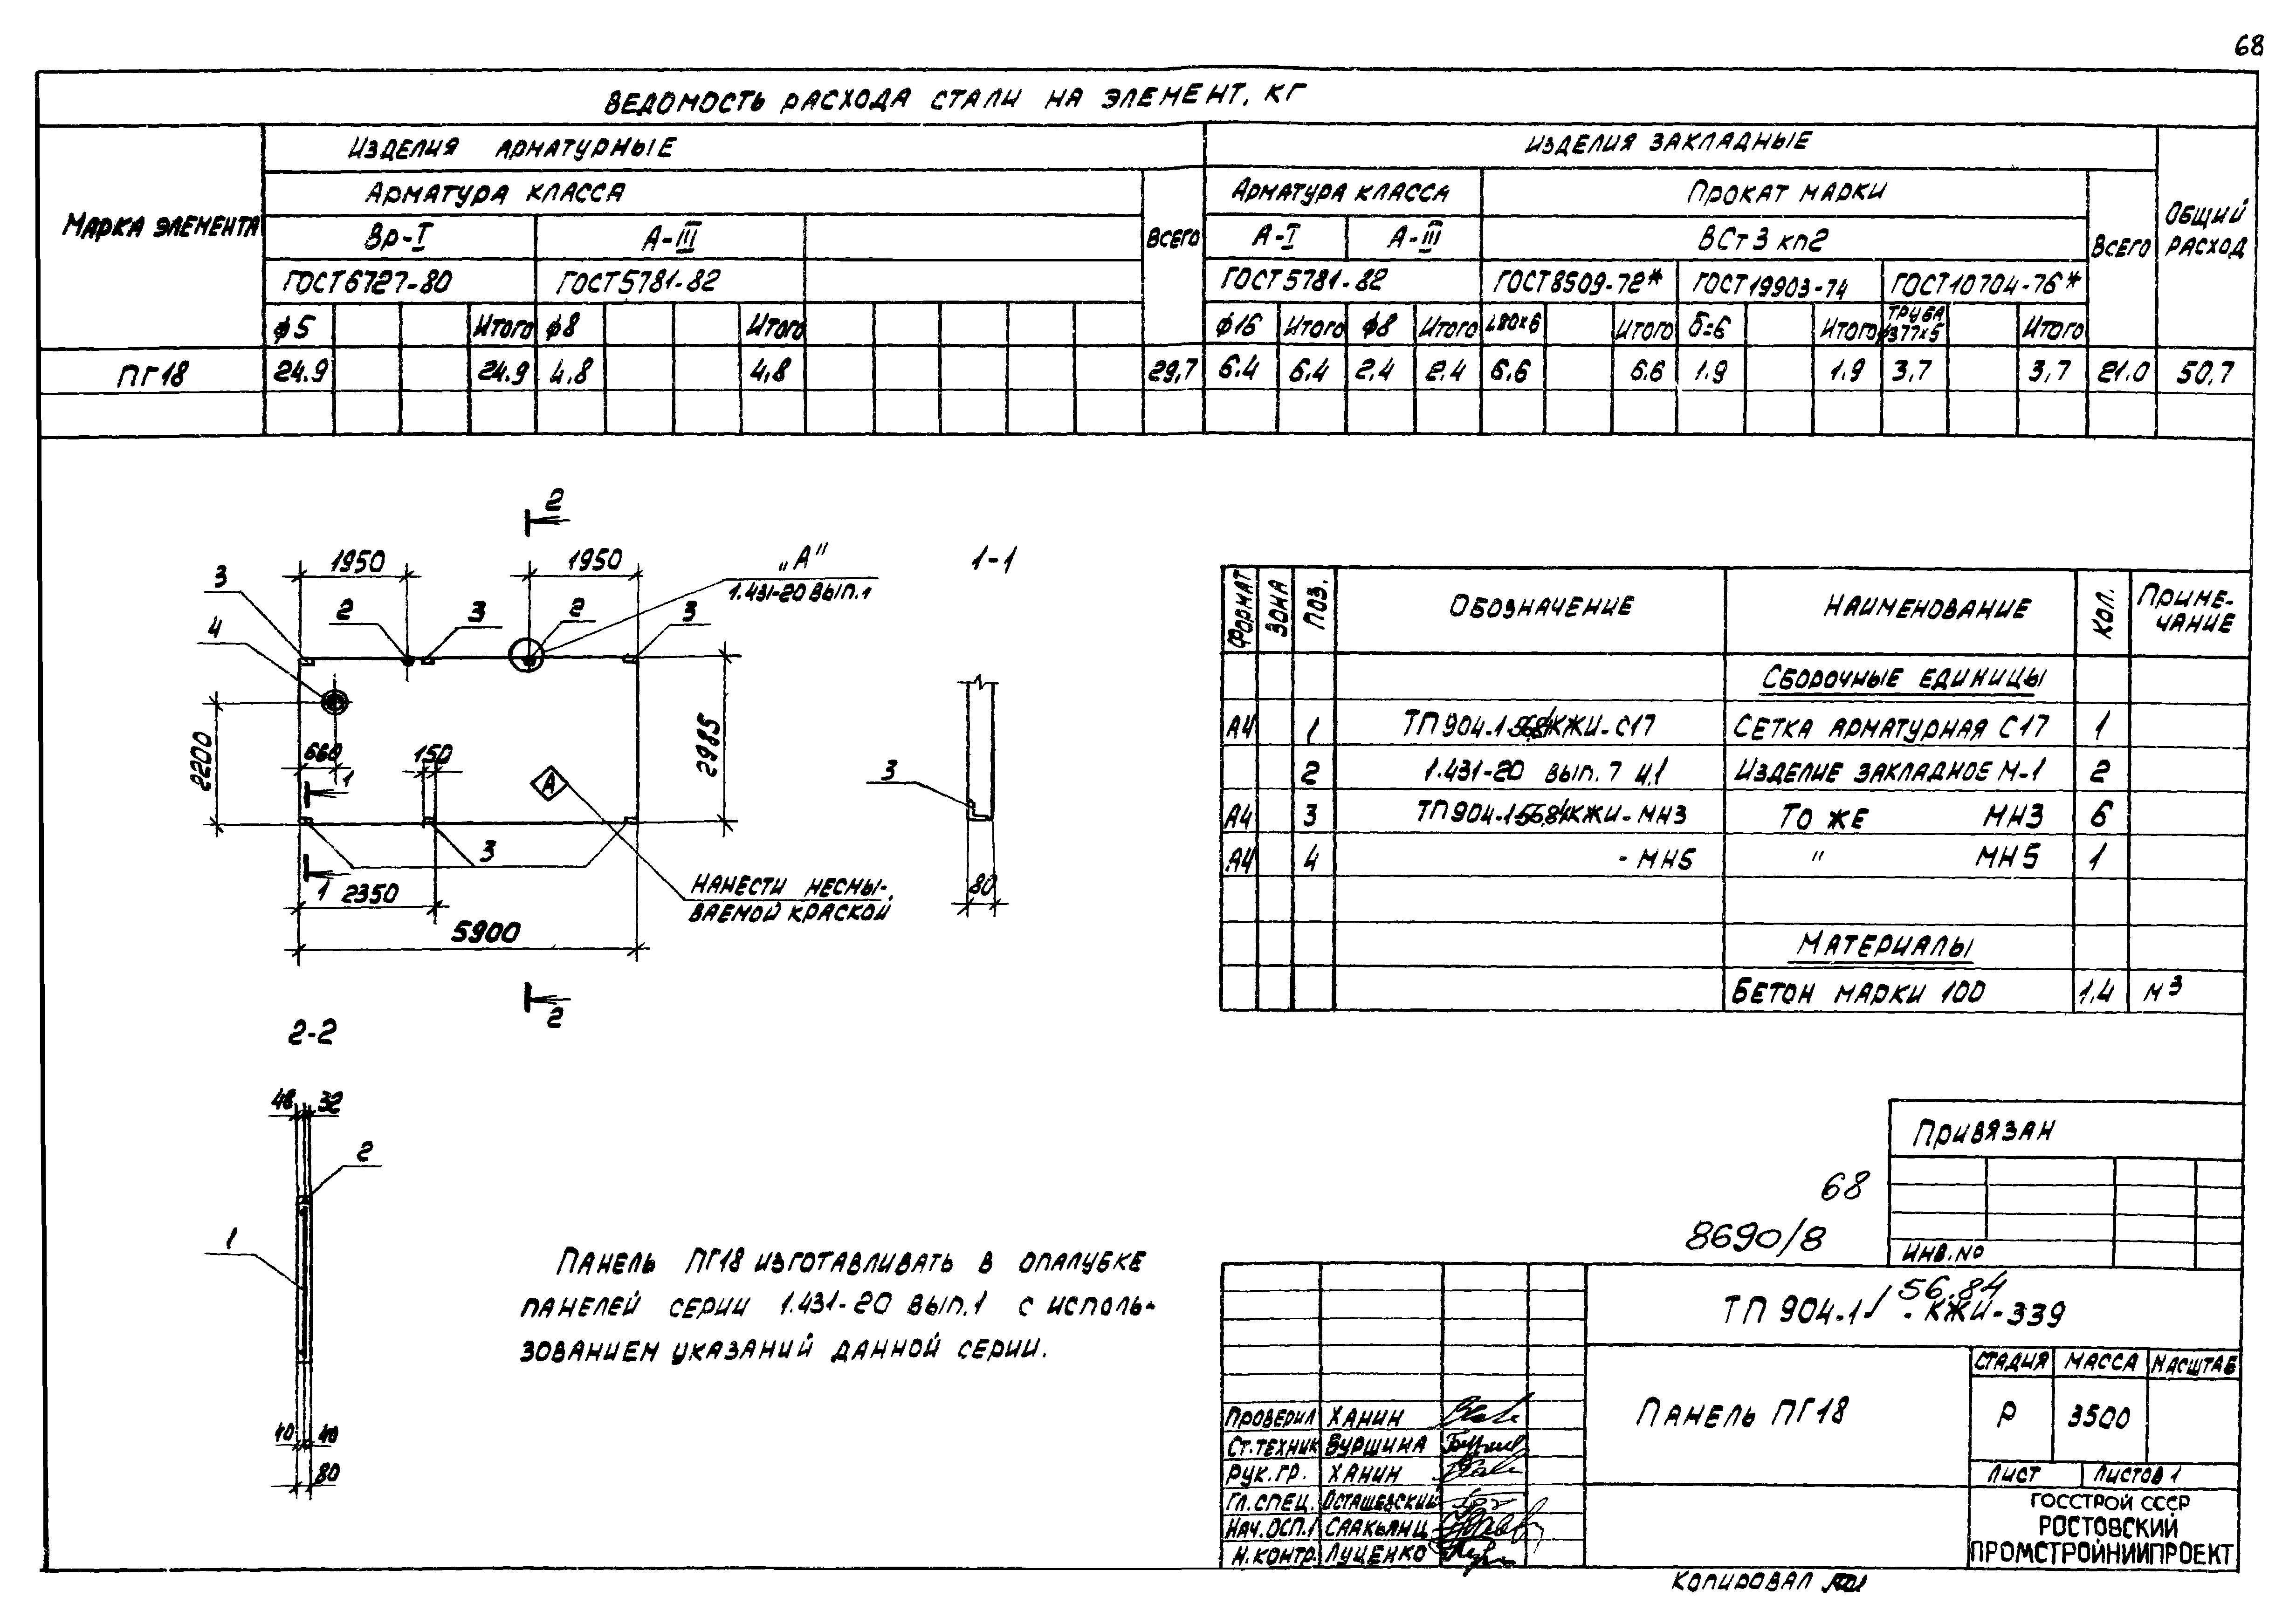 68
ВЕДОМОСТЬ РАСХОДА СТАЛИ НА ЭЛЕМЕНТ, КГ
МАРКА ЭЛЕМЕНТА
ИЗДЕЛИЯ АРМАТУРНЫЕ
ИЗДЕЛИЯ ЗАКЛАДНЫЕ
ОБЩИЙ РАСХОД
АРМАТУРА КЛАССА
ВСЕГО
АРМАТУРА КЛАССА
ПРОКАТ МАРКИ
ВСЕГО
Вр-I
А-III
А-I
А-III
ВСт3кп2
ГОСТ6727-80
ГОСТ5781-82
ГОСТ5781-82
ГОСТ8509-72*
ГОСТ19903-74
ГОСТ10704-76*
ϕ5 Итого ϕ8 Итого ϕ16 Итого ϕ8 Итого L80х6 Итого δ=6 Итого ТРУБА ϕ377х5 Итого
ПГ18 24.9 24.9 4,8 4,8 29,7 6.4 6.4 2,4 2.4 6.6 6.6 1.9 1.9 3,7 3,7 21.0 50,7
2
1950
1950
„А"
1.431-20 ВЫП.1
1-1
3
2
3
2
3
4
2200
660
150
1
А
2985
3
3
1
2350
НАНЕСТИ НЕСМЫ-
ВАЕМОЙ КРАСКОЙ
80
5900
2
2-2
48
32
2
1
40
40
80
ФОРМАТ ЗОНА ПОЗ. ОБОЗНАЧЕНИЕ НАИМЕНОВАНИЕ КОЛ. ПРИМЕ-ЧАНИЕ
СБОРОЧНЫЕ ЕДИНИЦЫ
А4 1 ТП904-1-56.84КЖИ-С17 СЕТКА АРМАТУРНАЯ С17 1
2 1.431-20 вып. 7 ч.1 ИЗДЕЛИЕ ЗАКЛАДНОЕ М-1 2
А4 3 ТП904-1-56.84КЖИ-МН3 ТО ЖЕ МН3 6
А4 4 -МН5 " МН5 1
МАТЕРИАЛЫ
БЕТОН МАРКИ 100 1,4 М3
ПАНЕЛЬ ПГ18 ИЗГОТАВЛИВАТЬ В ОПАЛУБКЕ
ПАНЕЛЕЙ СЕРИИ 1.431-20 ВЫП.1 С ИСПОЛЬ-
ЗОВАНИЕМ УКАЗАНИЙ ДАННОЙ СЕРИИ.
ПРИВЯЗАН
ИНВ.№
68
8690/8
ТП 904-1 56.84 -КЖИ-339
ПАНЕЛЬ ПГ18
СТАДИЯ МАССА МАСШТАБ
Р 3500
ЛИСТ ЛИСТОВ 1
ГОССТРОЙ СССР
РОСТОВСКИЙ
ПРОМСТРОЙНИИПРОЕКТ
ПРОВЕРИЛ ХАНИН
СТ.ТЕХНИК БУРШИНА
РУК.ГР. ХАНИН
ГЛ.СПЕЦ. ОСТАШЕВСКИЙ
НАЧ.ОСП.1 СААКЬЯНЦ
Н.КОНТР. ЛУЦЕНКО
КОПИРОВАЛ